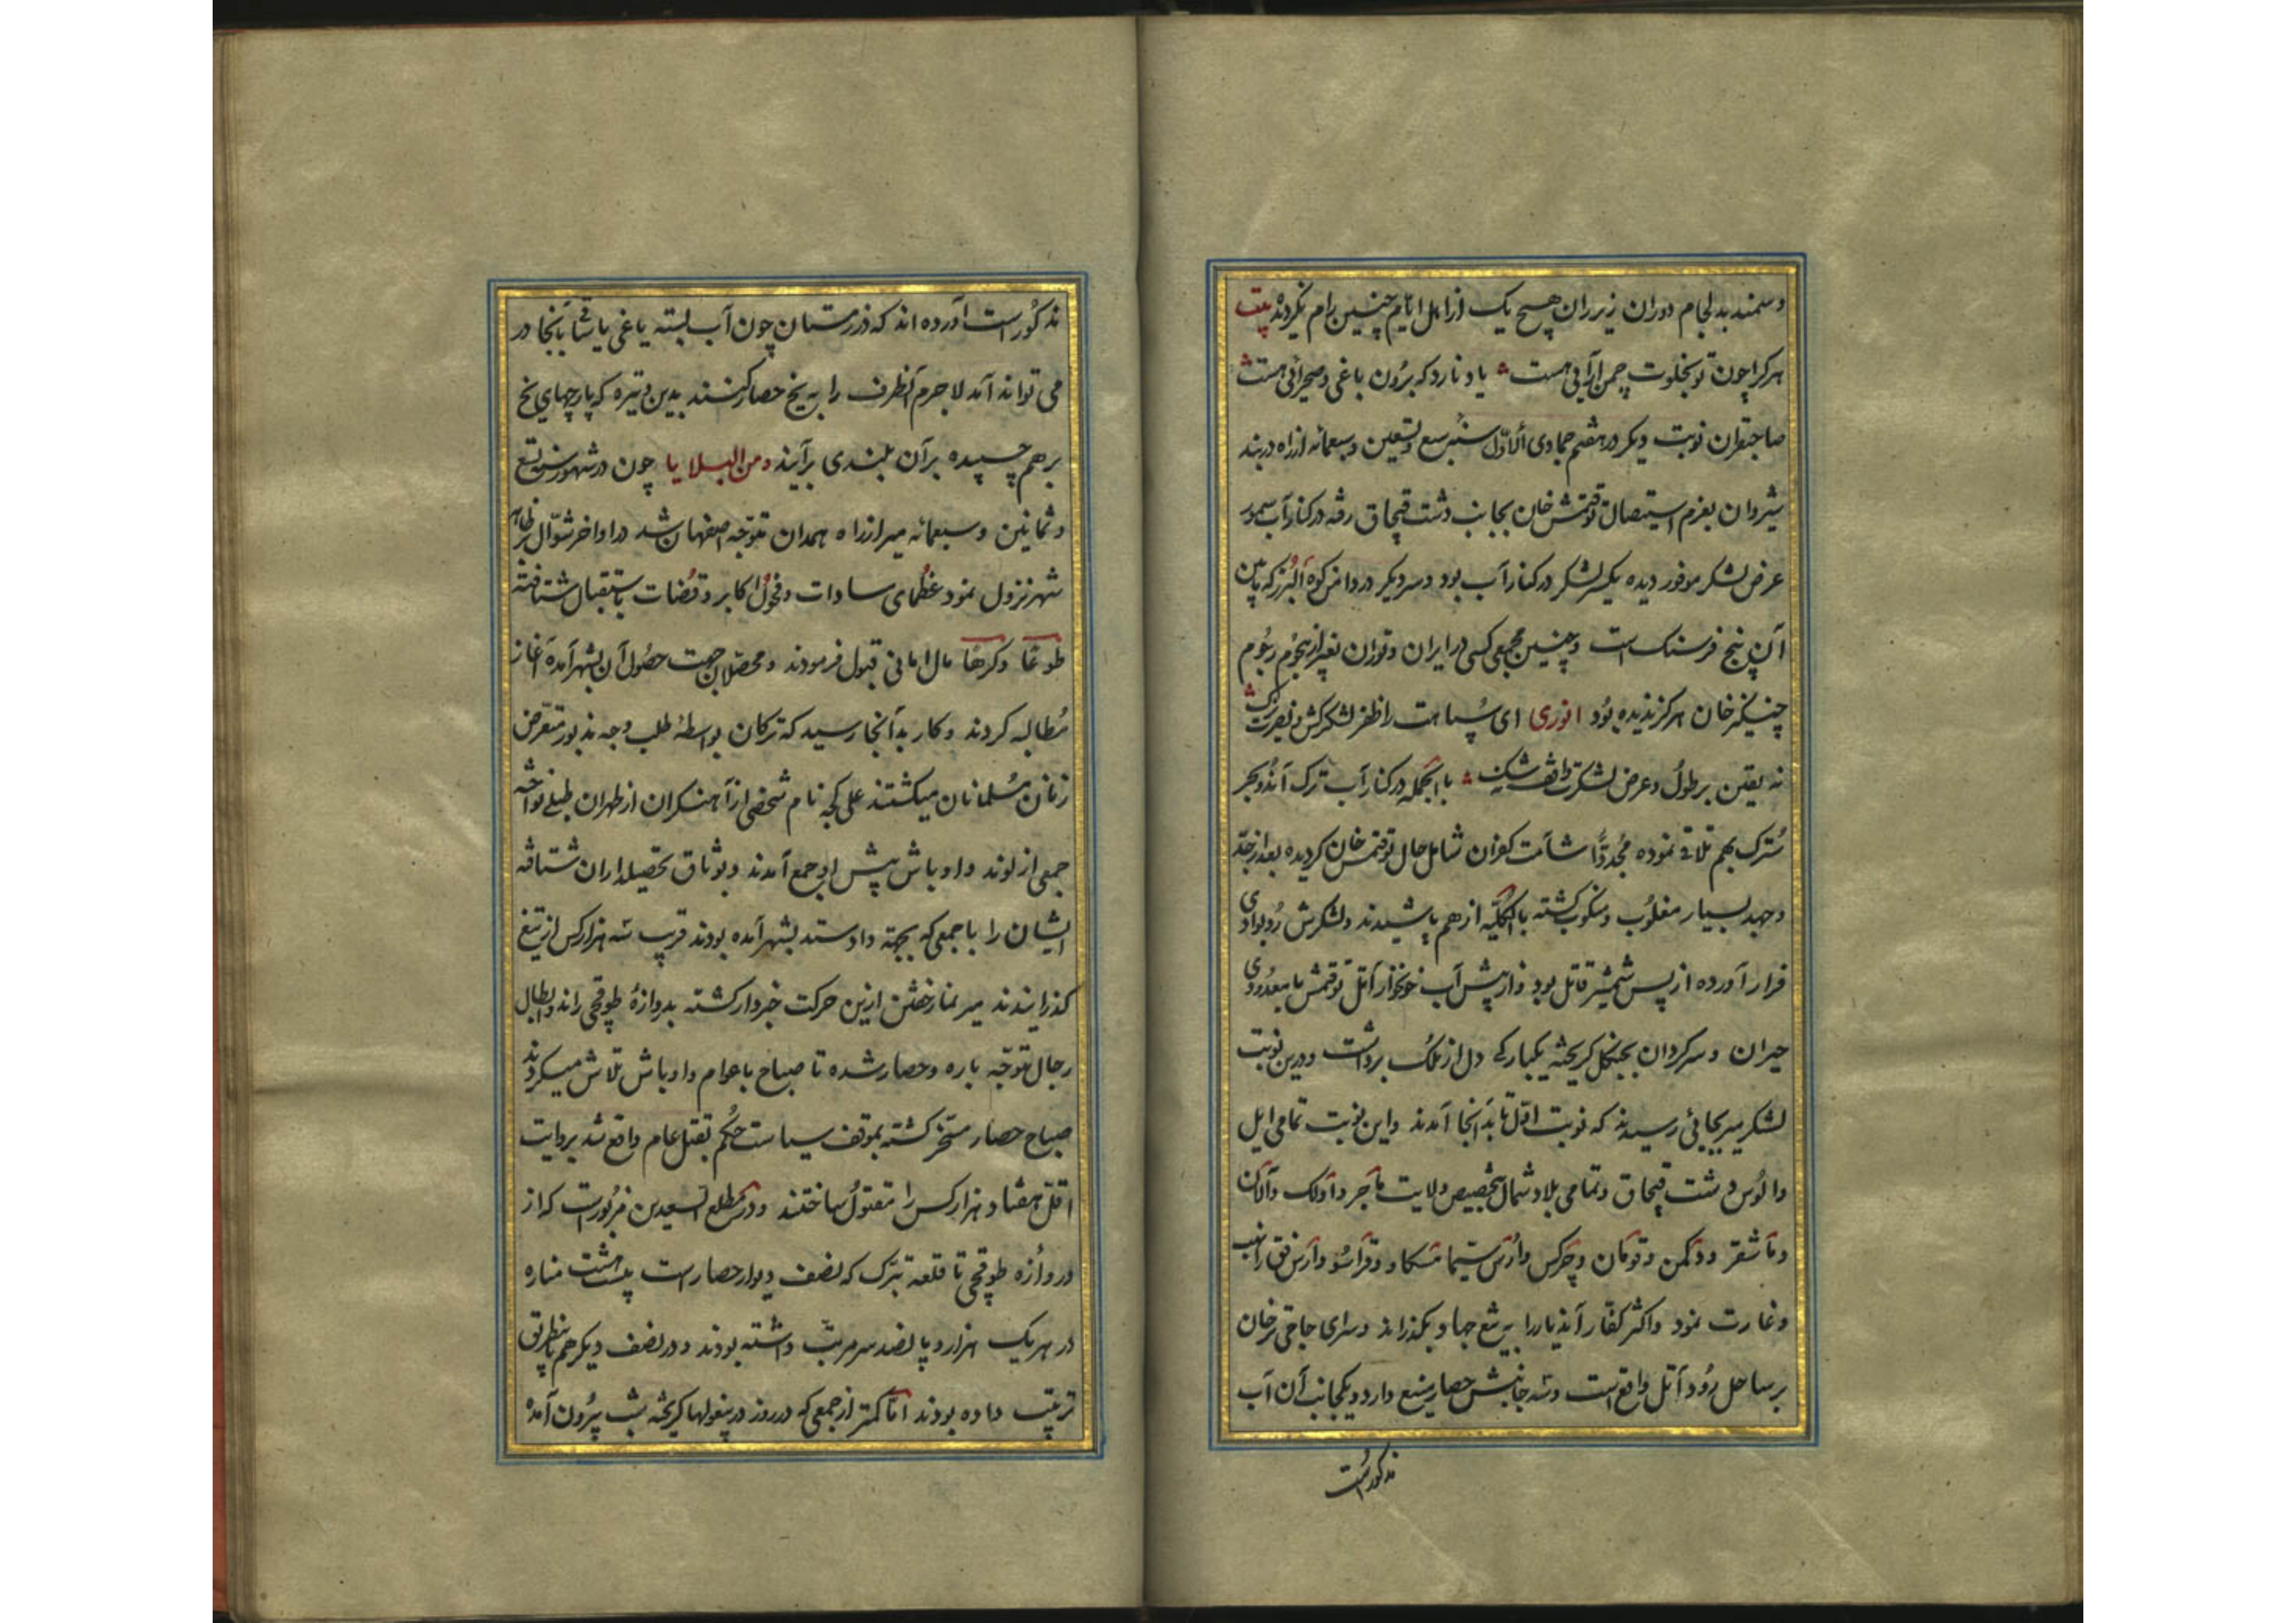 وسمند بدلجام دوران زیر ران هیچ یک از اهل ایام چنین رام نکرده بیت
هرکرا چون تو بخلوت چمن آرائی هست یاد نارد که برون باغی و صحرائی هست
صاحبقران نوبت دیکر در هفتم جمادی الاول سنه سبع و تسعین و سبعمائه از راه دربند
شیروان بعزم استیصال توقتمش خان بجانب دشت قپچاق رفته در کنار آب سمور
عرض لشکر موفور دیده یکسر لشکر در کنار آب بود و سر دیکر در دامن کوه البرز که مابین
آن پنج فرسنک است و چنین مجمعی کسی در ایران و توران بغیر از هجوم رجوم
چنیکز خان هرکز ندیده بود انوری ای سپاهت را ظفر لشکرکش و نصرت یزک
نه یقین بر طول و عرض لشکرت واقف نه شک با الجمله در کنار آب ترک آن دو بحر
سترک بهم تلاقی نموده مجددا شآمت کفران شامل حال توقتمش خان کردیده بعد از جد
و جهد بسیار مغلوب و منکوب کشته بالکلیه از هم پاشیدند و لشکرش رو بوادی
فرار آورده از پس شمشیر قاتل بود و از پیش آب خونخوار آتل توقتمش با معدودی
حیران و سرکردان بجنکل کریخته یکبارکی دل از ملک برداشت و درین نوبت
لشکر میر بجائی رسیدند که نوبت اول تا بدانجا آمدند و این نوبت تمامی ایل
و الوس دشت قپچاق و تمامی بلاد شمال بتخصیص ولایت ماجر و اولک و آلان
و ماشقر و دکمن و قومان و چرکس و اروس سیما مسکاو و قراسو و ارس فق را نهب
و غارت نمود و اکثر کفار آندیار را به تیغ جهاد بکذراند و سرای جاقی ترخان
بر ساحل رود آتل واقع است و سه جانبش حصار منیع دارد و یکجانب آن آب
مذکور است
مذکور است آورده اند که در زمستان چون آب بسته یاغی یا شاقی بآنجا در
می تواند آمد لاجرم آنطرف را به یخ حصار کنند بدین وتیره که پارچهای یخ
بر هم چسپیده بر آن بلندی برآیند ومن البلایا چون در شهور سنه تسع
و ثمانین و سبعمائه میر از راه همدان متوجه اصفهان شد در اواخر شوال بظاهر
شهر نزول نمود عظمای سادات و فحول اکابر و قضات باستقبال شتافته
طوعا و کرها مال امانی قبول فرمودند و محصلان جهت حصول آن بشهر آمده آغاز
مطالبه کردند و کار بدآنجا رسید که ترکان بواسطه طلب وجه مذبور متعرض
زنان مسلمانان میکشتند علی کچه نام شخصی از آهنکران از طهران طبلی نواخته
جمعی از لوند و اوباش پیش او جمع آمدند و بوثاق تحصیلداران شتافته
ایشان را با جمعی که بجهة داد و ستد بشهر آمده بودند قریب سه هزار کس از تیغ
کذرانیدند میر نماز خفتن ازین حرکت خبردار کشته بدروازه طوقچی راند و ابطال
رجال متوجه باره و حصار شده تا صباح با عوام و اوباش تلاش میکردند
صباح حصار مسخر کشته بموقف سیاست حکم بقتل عام واقع شد بروایت
اقل هفتاد هزار کس را مقتول ساختند و در مطلع السعدین مزبور است که از
دروازه طوقچی تا قلعه تبرک که نصف دیوار حصار است بیست هشت مناره
در هر یک هزار و پانصد سر مرتب داشته بودند و در نصف دیکر هم بنظریق
ترتیب داده بودند اما کمتر از جمعی که در روز در بیغولها کریخته شب بیرون آمده